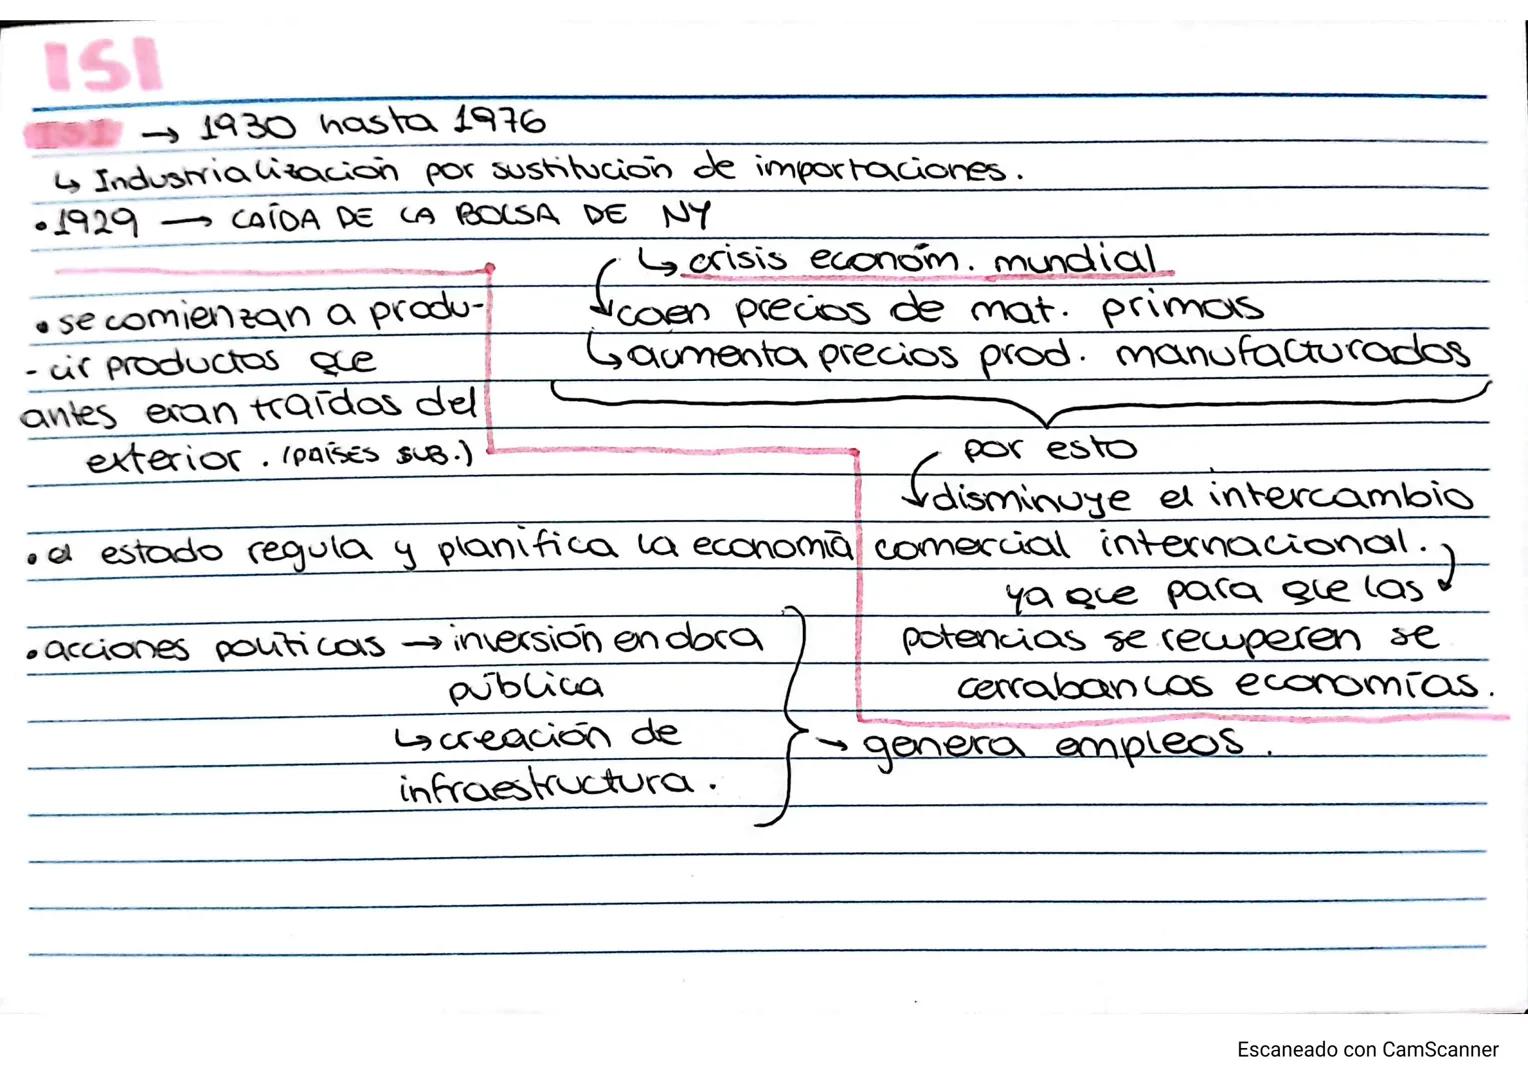 ISI
ISI → 1930 hasta 1976
↳ Industrialización por sustitución de importaciones.
• 1929 → CAÍDA DE LA BOLSA DE NY
↳ crisis económ. mundial
↳ caen precios de mat. primas
↳ aumenta precios prod. manufacturados
por esto
↳ disminuye el intercambio
comercial internacional.
ya que para que las
potencias se recuperen se
cerraban las economías.
• se comienzan a produ-
- cir productos que
antes eran traídos del
exterior. (PAÍSES SUB.)
• el estado regula y planifica la economía
• acciones políticas → inversión en obra
pública
↳ creación de
infraestructura.
→ genera empleos.
Escaneado con CamScanner